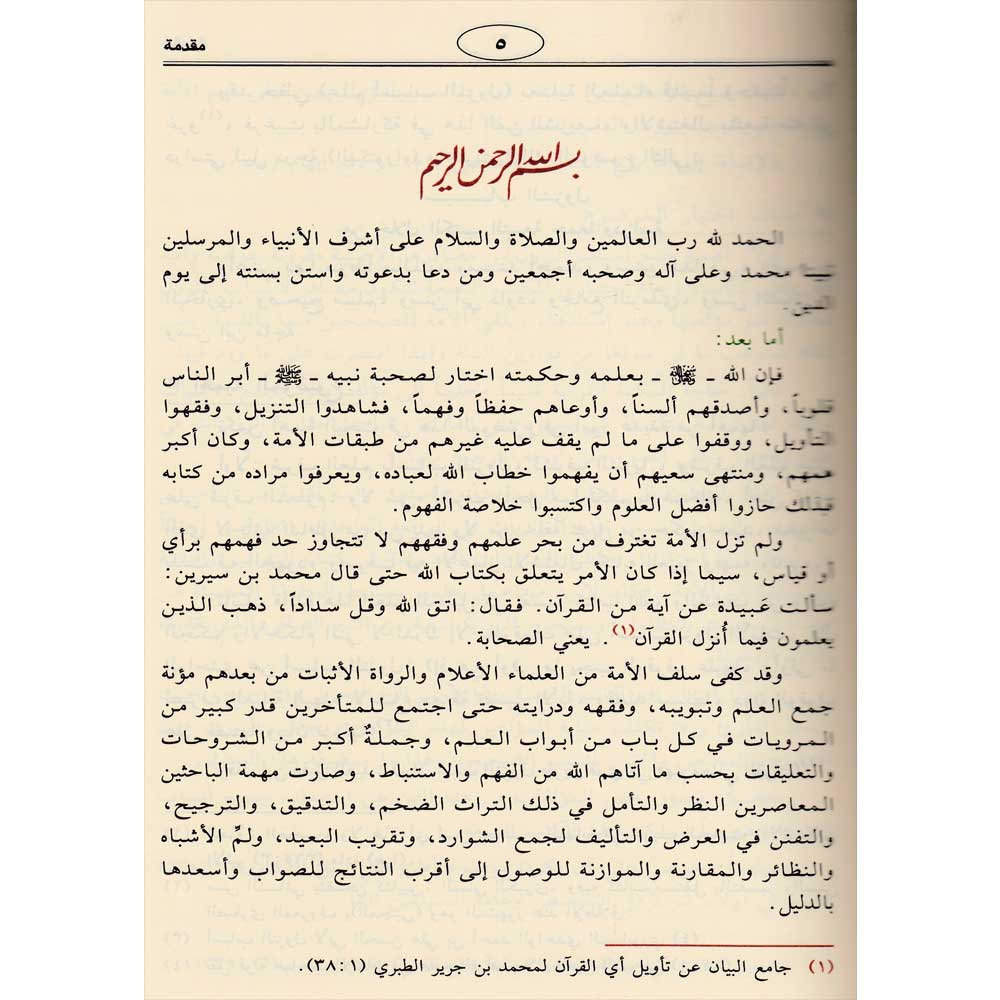 مقدمة
٥
بسم الله الرحمن الرحيم
الحمد لله رب العالمين والصلاة والسلام على أشرف الأنبياء والمرسلين
محمد وعلى آله وصحبه أجمعين ومن دعا بدعوته واستن بسنته إلى يوم
الدين.
أما بعد:
فإن الله ـ ﷻ ـ بعلمه وحكمته اختار لصحبة نبيه ـ ﷺ ـ أبر الناس
قلوباً، وأصدقهم ألسناً، وأوعاهم حفظاً وفهماً، فشاهدوا التنزيل، وفقهوا
التأويل، ووقفوا على ما لم يقف عليه غيرهم من طبقات الأمة، وكان أكبر
همهم، ومنتهى سعيهم أن يفهموا خطاب الله لعباده، ويعرفوا مراده من كتابه
فبذلك حازوا أفضل العلوم واكتسبوا خلاصة الفهوم.
ولم تزل الأمة تغترف من بحر علمهم وفقههم لا تتجاوز حد فهمهم برأي
أو قياس، سيما إذا كان الأمر يتعلق بكتاب الله حتى قال محمد بن سيرين:
سألت عَبيدة عن آية من القرآن. فقال: اتق الله وقل سداداً، ذهب الذين
يعلمون فيما أُنزل القرآن(١). يعني الصحابة.
وقد كفى سلف الأمة من العلماء الأعلام والرواة الأثبات من بعدهم مؤنة
جمع العلم وتبويبه، وفقهه ودرايته حتى اجتمع للمتأخرين قدر كبير من
المرويات في كل باب من أبواب العلم، وجملةٌ أكبر من الشروحات
والتعليقات بحسب ما آتاهم الله من الفهم والاستنباط، وصارت مهمة الباحثين
المعاصرين النظر والتأمل في ذلك التراث الضخم، والتدقيق، والترجيح،
والتفنن في العرض والتأليف لجمع الشوارد، وتقريب البعيد، ولمِّ الأشباه
والنظائر والمقارنة والموازنة للوصول إلى أقرب النتائج للصواب وأسعدها
بالدليل.
(١) جامع البيان عن تأويل أي القرآن لمحمد بن جرير الطبري (١: ٣٨).